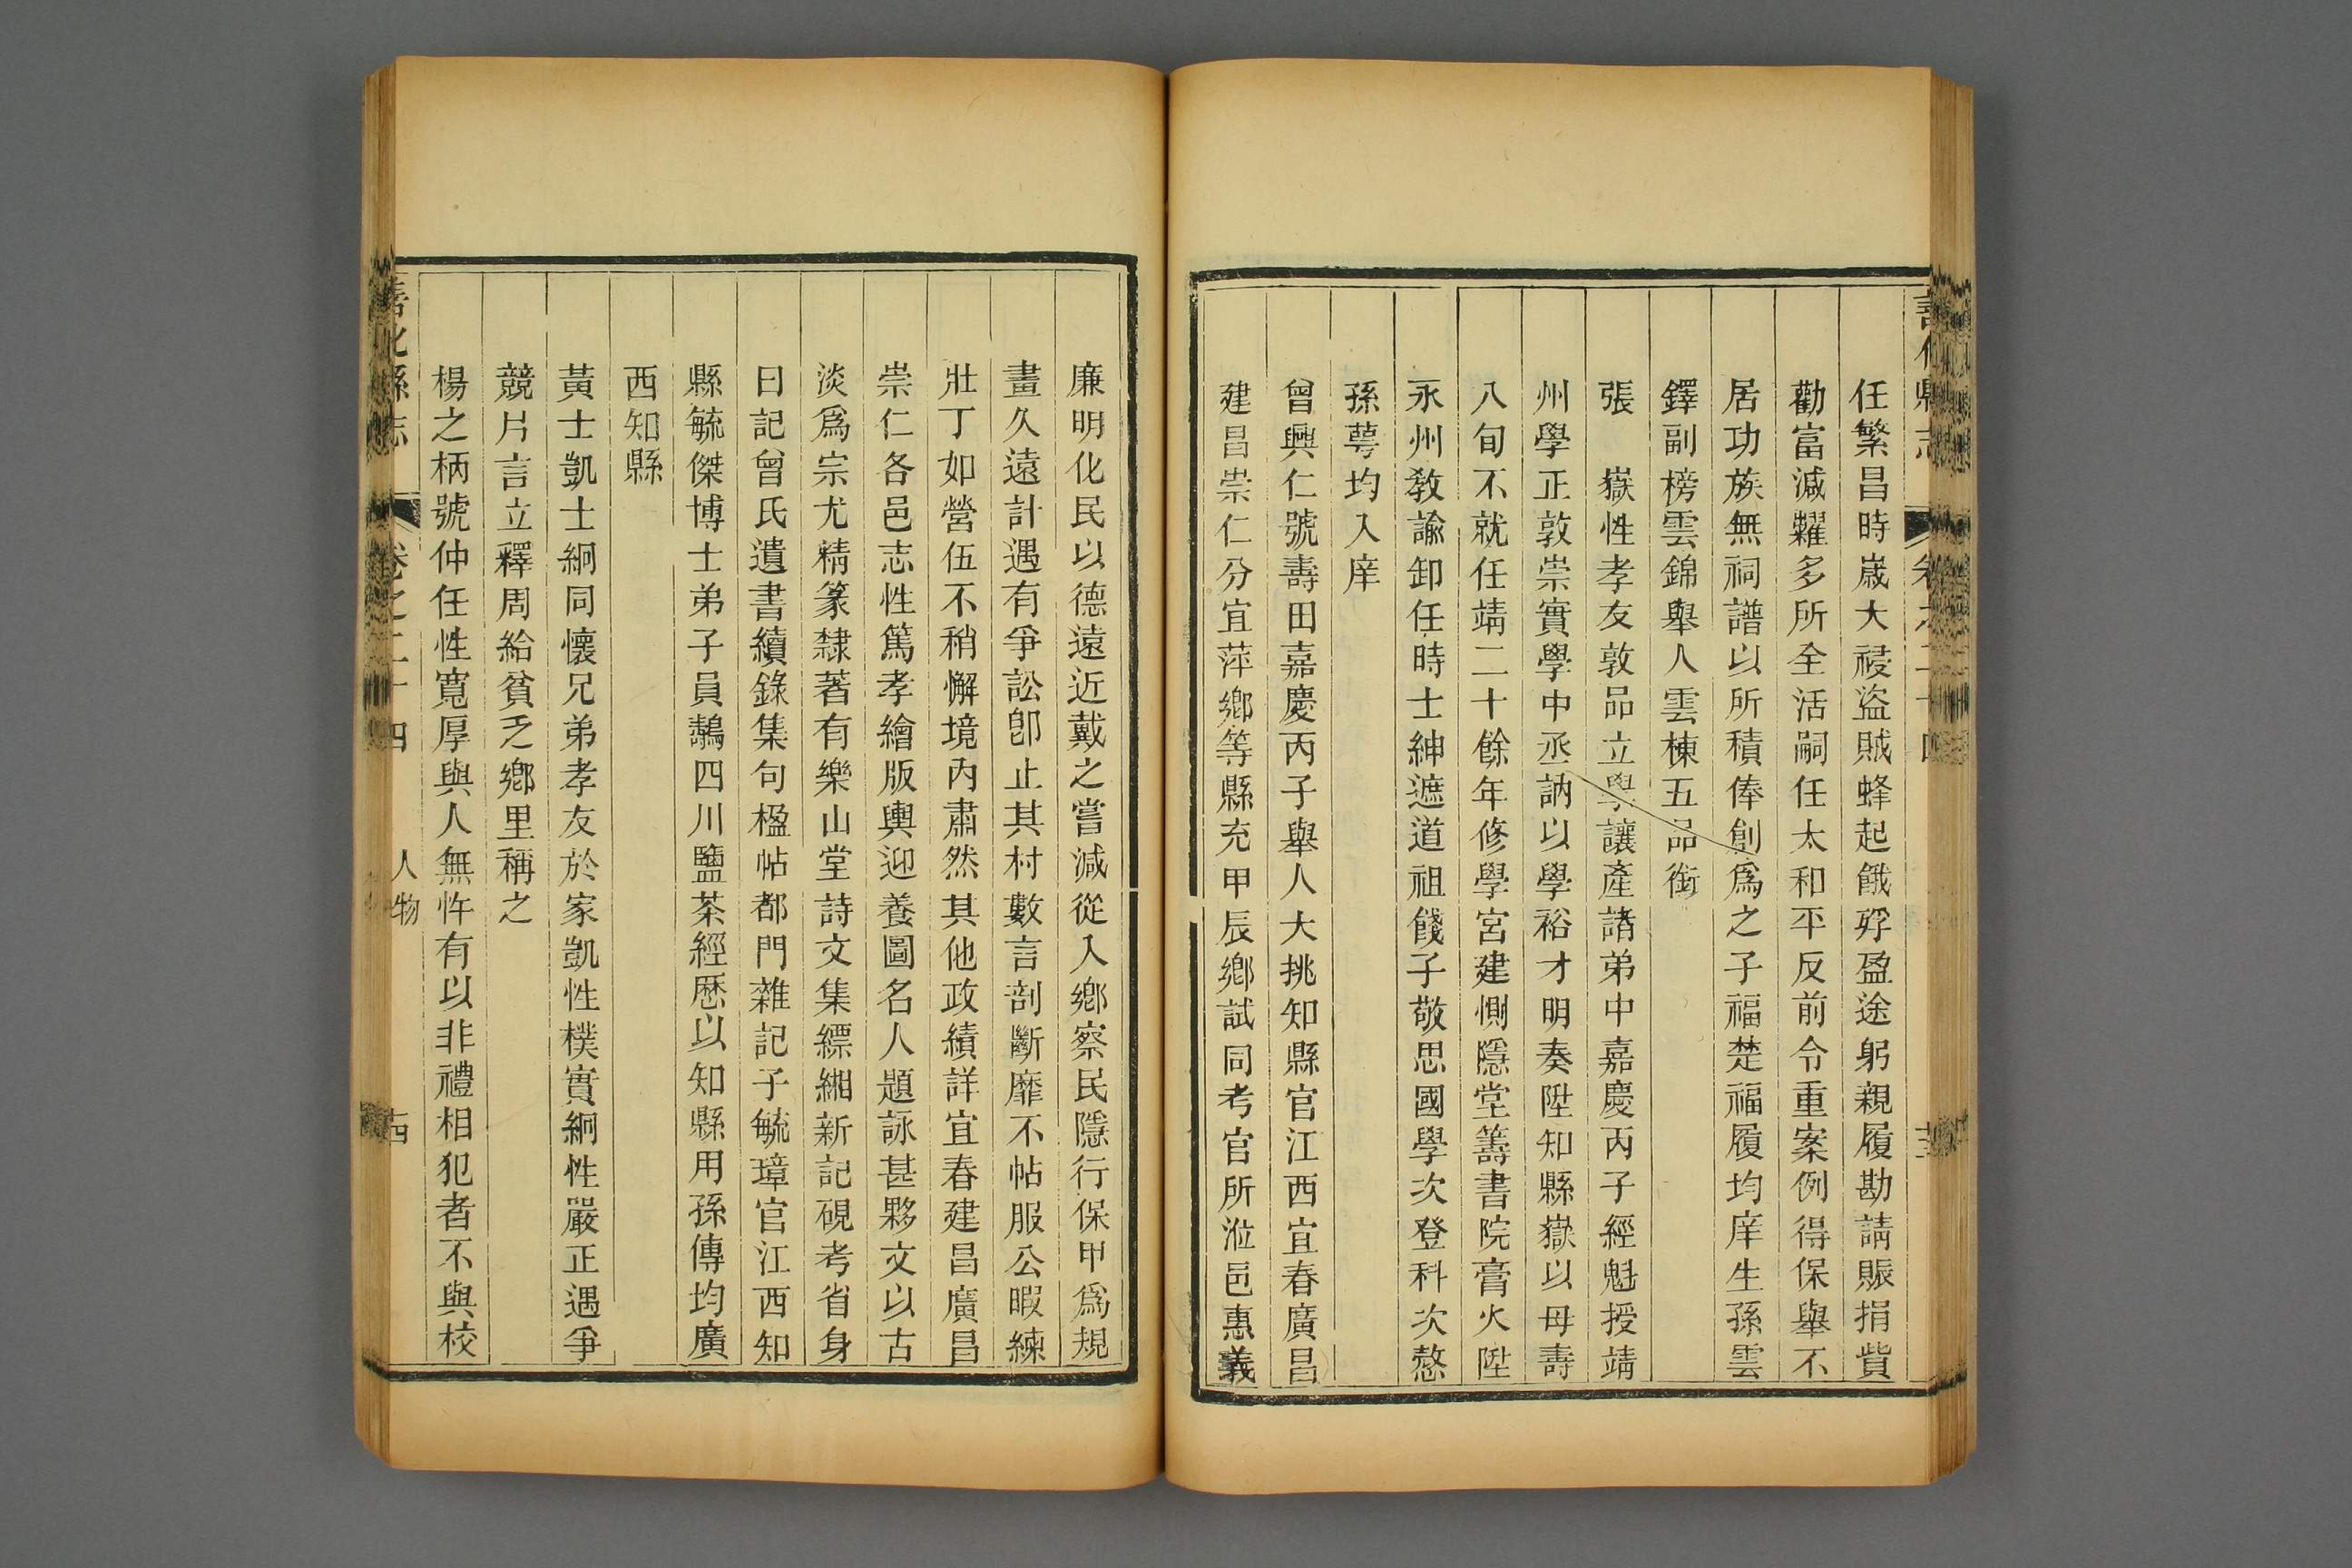 任繁昌時歲大祲盜賊蜂起餓殍盈途躬親履勘請賑捐貲
勸富減糶多所全活嗣任太和平反前令重案例得保舉不
居功族無祠譜以所積俸創爲之子福楚福履均庠生孫雲
鐸副榜雲錦舉人雲棟五品銜
張　嶽性孝友敦品立學讓產諸弟中嘉慶丙子經魁授靖
州學正敦崇實學中丞訥以學裕才明奏陞知縣嶽以母壽
八旬不就任靖二十餘年修學宮建惻隱堂籌書院膏火陞
永州教諭卸任時士紳遮道祖餞子敬思國學次登科次愸
孫萼均入庠
曾興仁號壽田嘉慶丙子舉人大挑知縣官江西宜春廣昌
建昌崇仁分宜萍鄉等縣充甲辰鄉試同考官所涖邑惠義
廉明化民以德遠近戴之嘗減從入鄉察民隱行保甲爲規
畫久遠計遇有爭訟卽止其村數言剖斷靡不帖服公暇練
壯丁如營伍不稍懈境內肅然其他政績詳宜春建昌廣昌
崇仁各邑志性篤孝繪版輿迎養圖名人題詠甚夥文以古
淡爲宗尤精篆隸著有樂山堂詩文集縹緗新記硯考省身
日記曾氏遺書續錄集句楹帖都門雜記子毓璋官江西知
縣毓傑博士弟子員毓四川鹽茶經歷以知縣用孫傳均廣
西知縣
黃士凱士絅同懷兄弟孝友於家凱性樸實絅性嚴正遇爭
競片言立釋周給貧乏鄉里稱之
楊之柄號仲任性寬厚與人無忤有以非禮相犯者不與校
善化縣志　卷之二十四　人物　十四